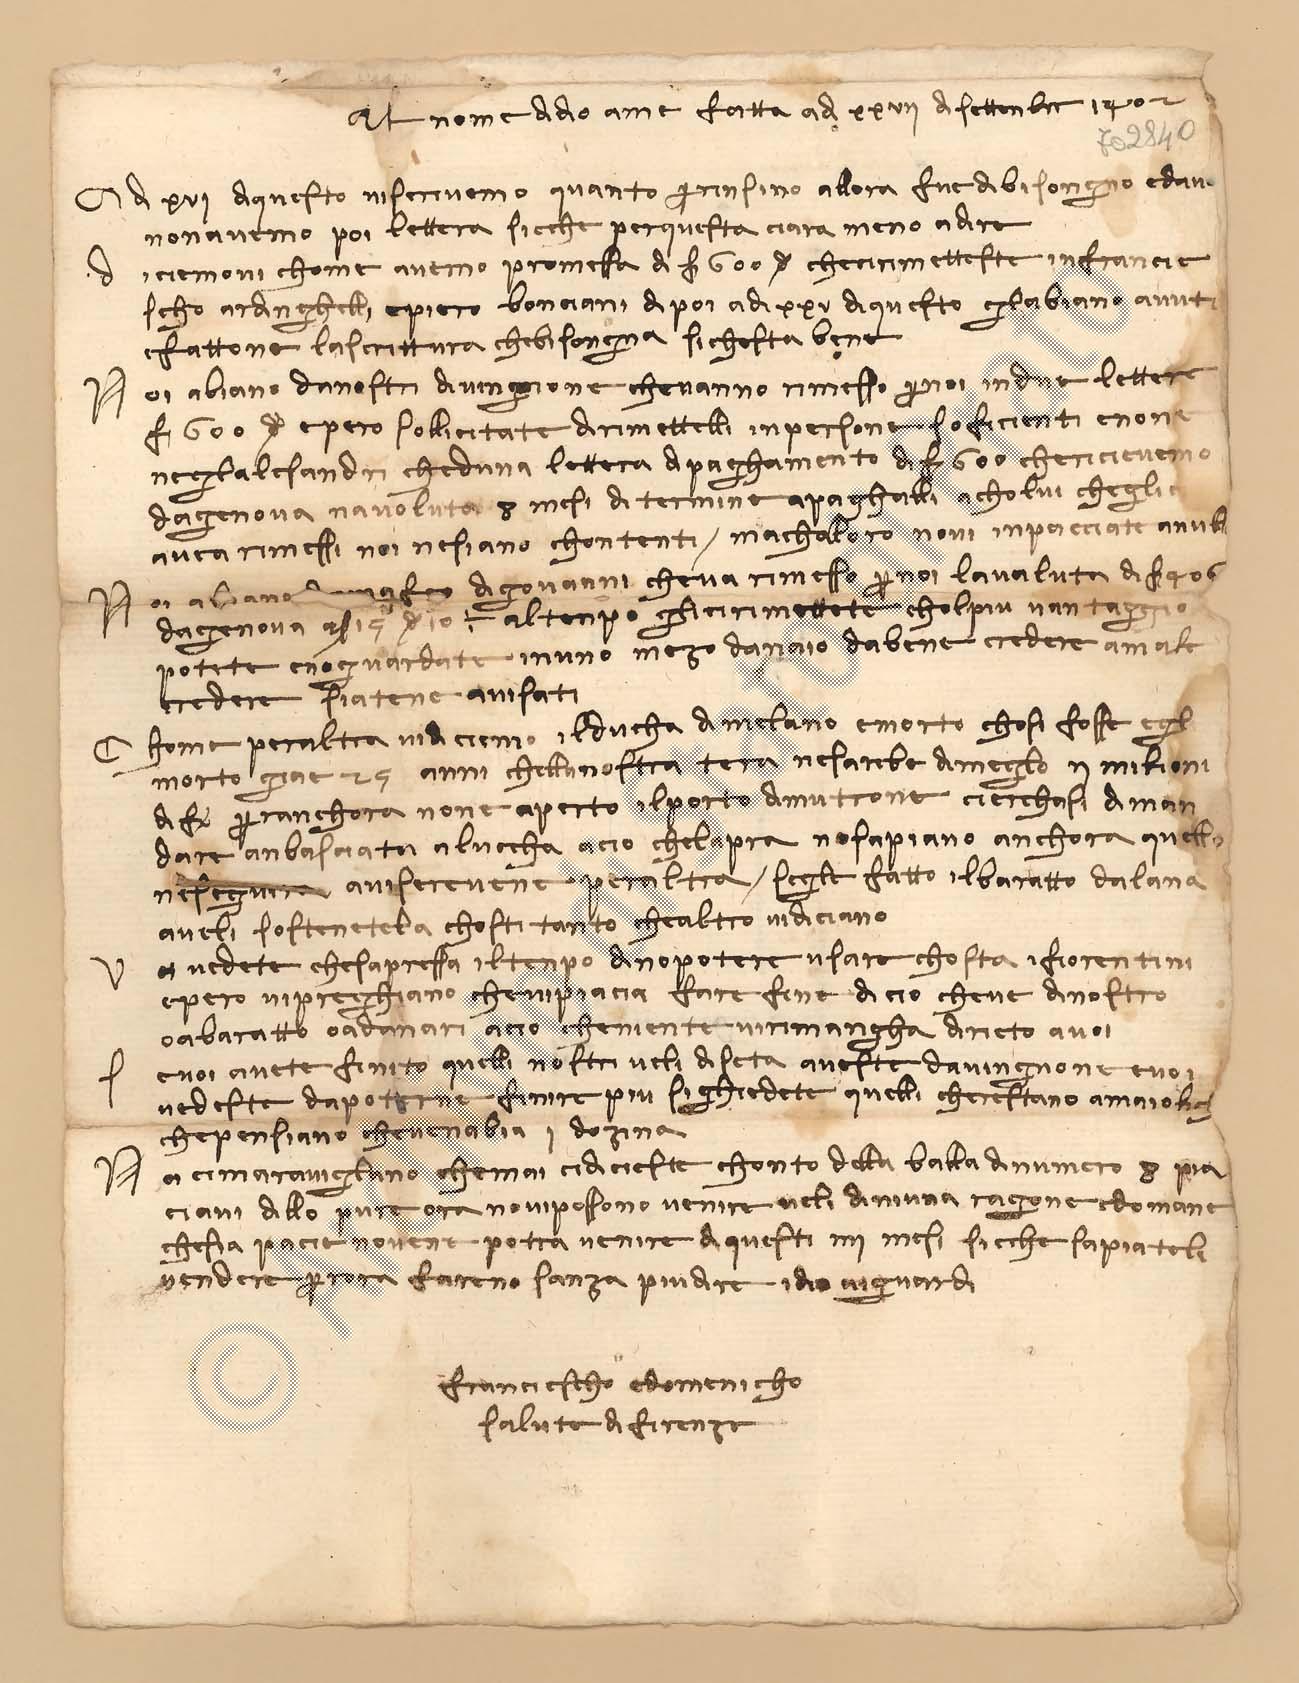 Al nome di dio ame fatta adi xxvii di settenbre 1402
702840
Adi xvi di questo vi scrivemo quanto per insino allora fue di bisongno e da voi
non avemo poi lettera sicche per questa ci ara meno a dire
diciemovi chome avemo promessa di f 600 che ci rimetteste in francie
scho ardinghelli e piero bonciani di poi adi xxv di questo gl abiano avuti
e fattone la scrittura che bisongna siche sta bene
Noi abiano da nostri di vingnone che v anno rimesso per noi in due lettere
f 600 e pero sollicitate di rimettelli in persone soficienti e none
negl alesandri che d una lettera di paghamento di f 600 che ricievemo
da gienova n a voluto 8 mesi di termine a paghalli a cholui che gli
avea rimessi noi ne siano chontenti / ma cho loro non v inpacciate a nulla
Noi abiano di govanni che v a rimesso per noi la valuta di f 406
da gienova al tenpo gli ci rimettete chol piu vantaggio
potete e no guardate in uno mezo danaio da bene credere a male
credere siatene avisati
Chome per altra vi diciemo il ducha di melano e morto chosi fosse egli
morto gia e 25 anni che lla nostra tera ne sarebe di meglo milioni
di f per anchora none aperto il porto di mutrone cierchasi di man
dare anbasciata a luccha acio che l apra no sapiano anchora quello
ne seguira aviserevene per altra / se gl e fatto il baratto da lana
a veli sostenetela chosti tanto che altro vi diciano
Voi vedete che s apressa il tenpo di no potere usare chosta i fiorentini
e pero vi preghiano che vi piacia fare fine di cio che v e di nostro
o a baratto o a danari acio che niente vi rimangha dirieto a voi
Se voi avete finito quelli nostri veli di seta aveste da vingnone e voi
vedeste da poterne finire piu si ghiedete quelli che restano a maiolicha
che pensiano che ve n abia 1 dozina
Noi ci maravigliano che mai ci dicieste chonto della balla di numero 8 pia
ciavi dillo pure ora no vi possono venire veli di niuna ragone e domane
che sia pacie no ve ne potra venire di questi iiii mesi sicche sapiateli
vendere per ora fareno sanza piu dire idio vi guardi
Franciescho e domenicho
salute di firenze